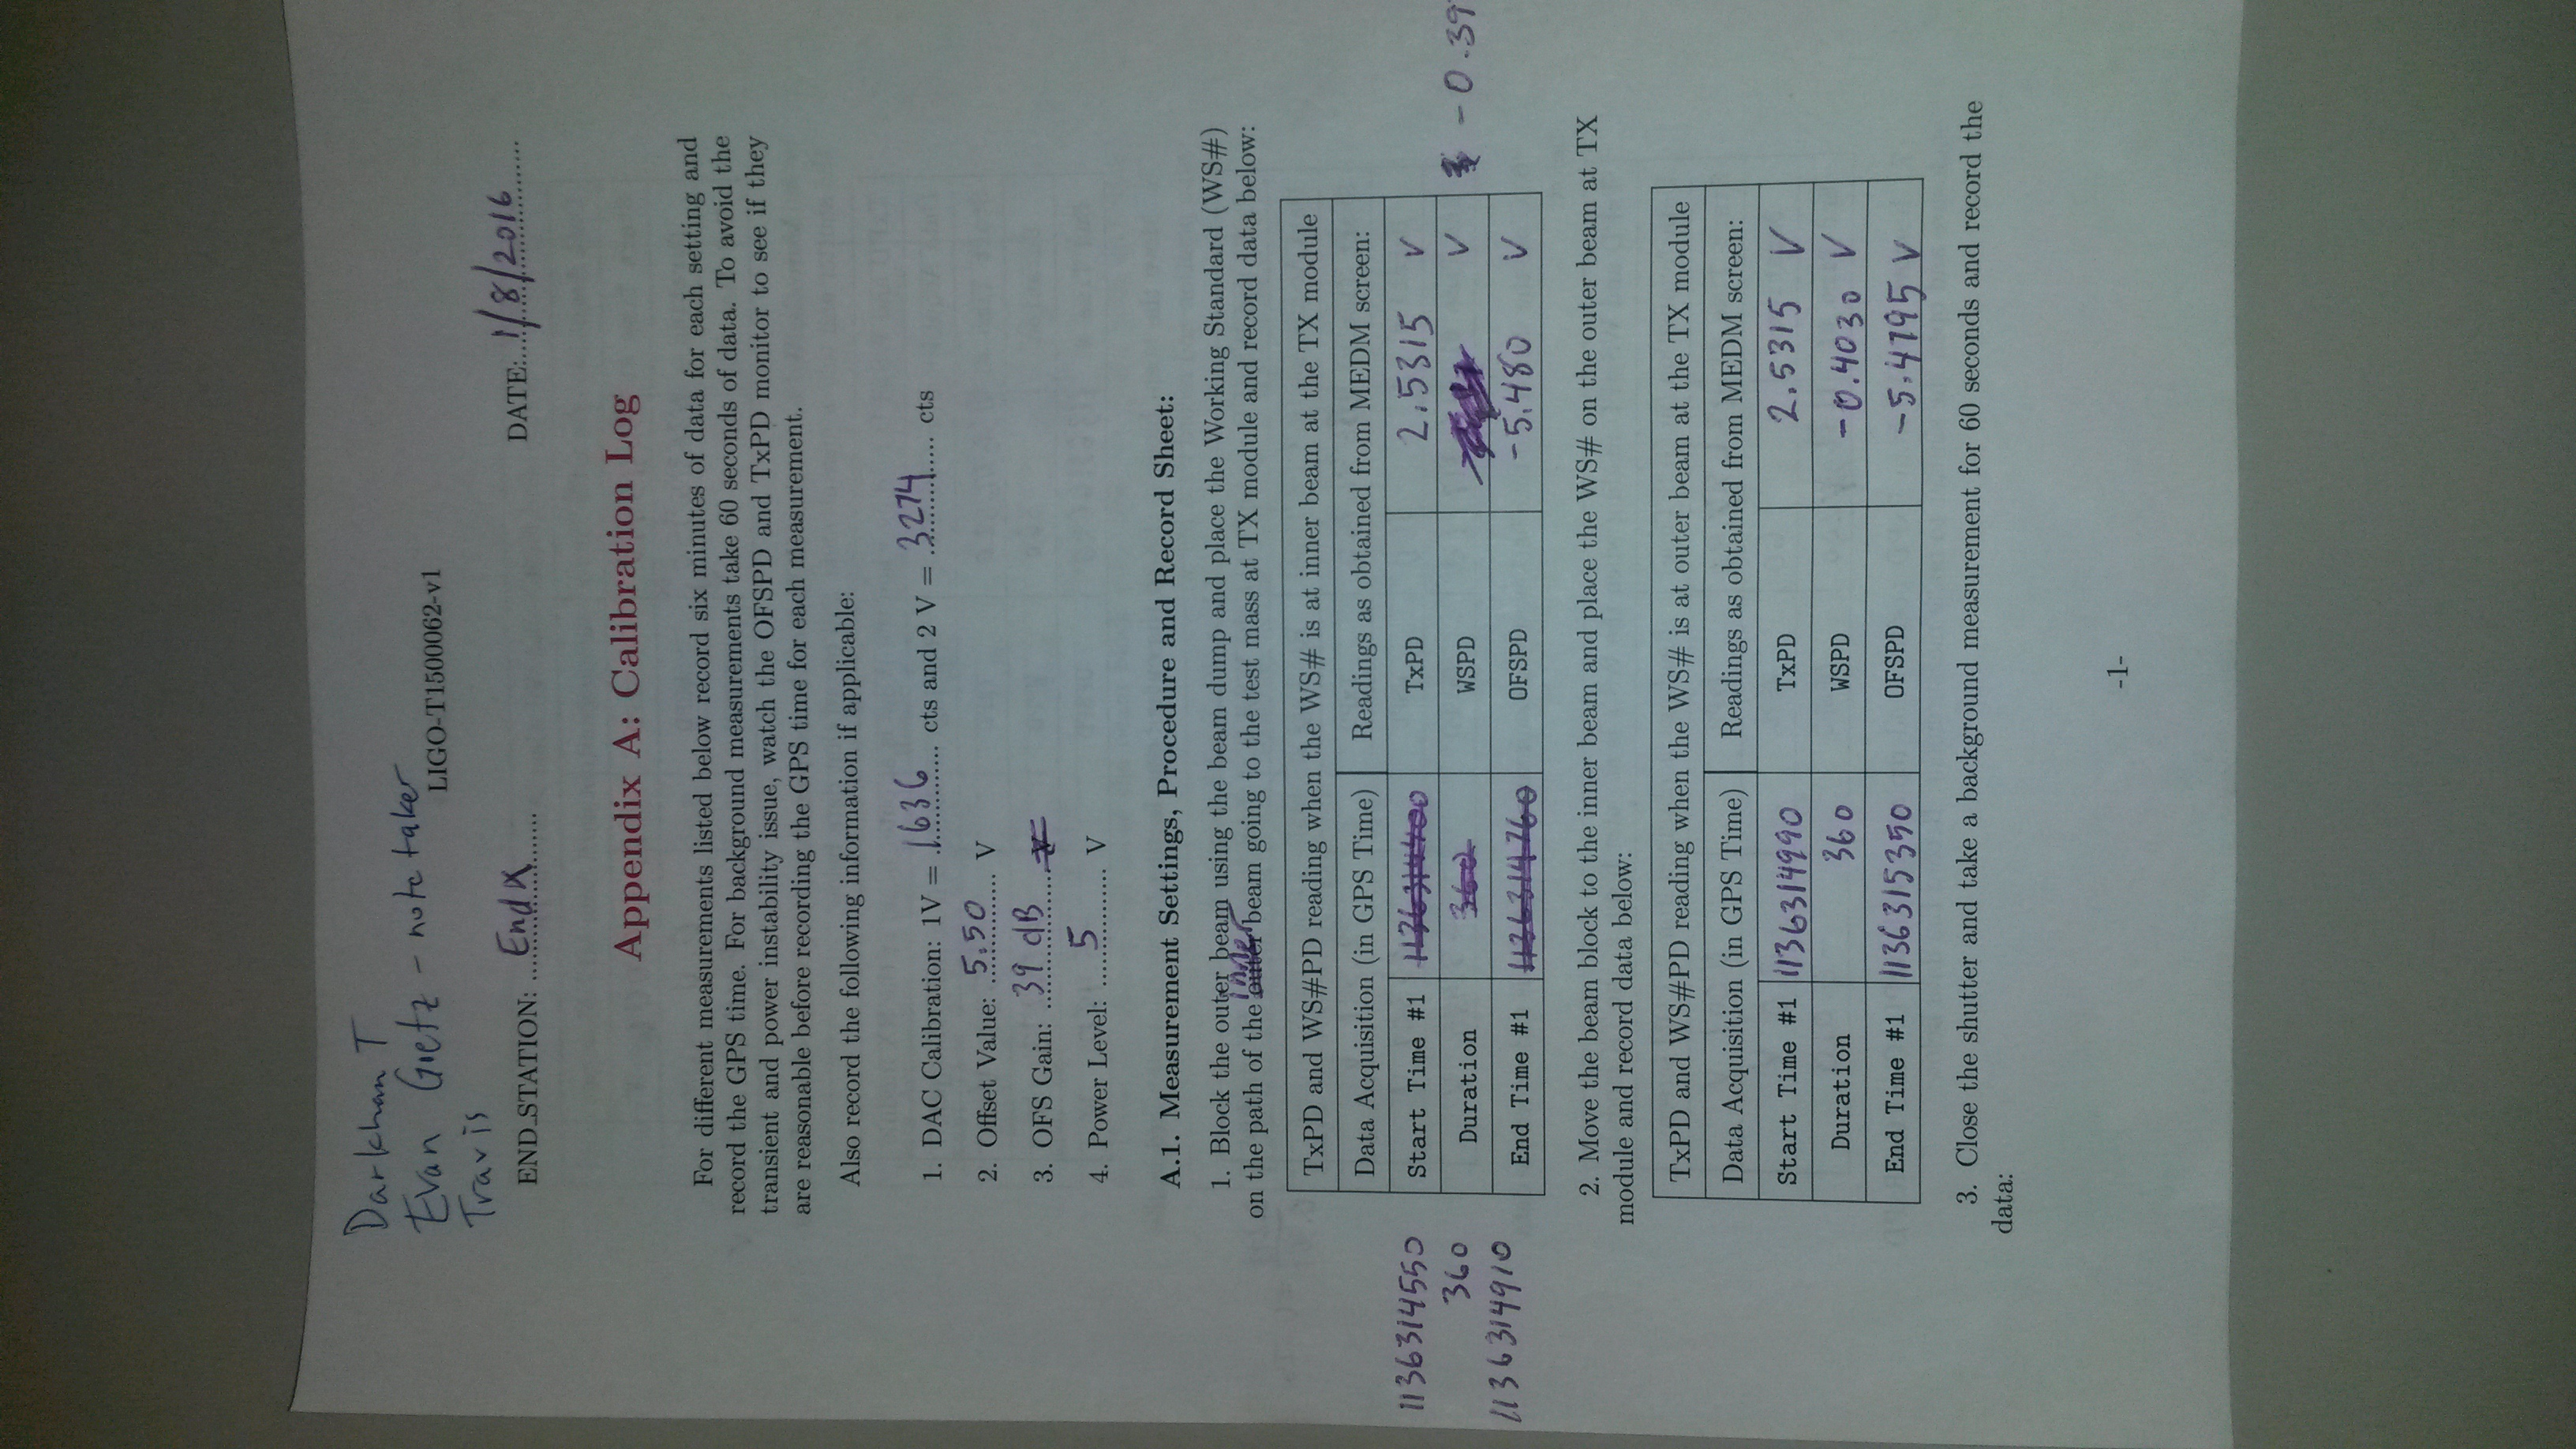 Darkhan T
Evan Goetz - note taker
Travis
LIGO-T1500062-v1
END_STATION: ...End X...... DATE:...1/8/2016......
Appendix A: Calibration Log
For different measurements listed below record six minutes of data for each setting and
record the GPS time. For background measurements take 60 seconds of data. To avoid the
transient and power instability issue, watch the OFSPD and TxPD monitor to see if they
are reasonable before recording the GPS time for each measurement.
Also record the following information if applicable:
1. DAC Calibration: 1V = .1636...... cts and 2 V = .3274..... cts
2. Offset Value: ..5.50...... V
3. OFS Gain: ...39 dB...... V
4. Power Level: ....5...... V
A.1. Measurement Settings, Procedure and Record Sheet:
1. Block the outer beam using the beam dump and place the Working Standard (WS#)
inner
on the path of the outer beam going to the test mass at TX module and record data below:
TxPD and WS#PD reading when the WS# is at inner beam at the TX module
Data Acquisition (in GPS Time) Readings as obtained from MEDM screen:
1136314550 Start Time #1 1136314400 TxPD 2.5315 V
360 Duration 360 WSPD V - 0.39
1136314910 End Time #1 1136314760 OFSPD -5.480 V
2. Move the beam block to the inner beam and place the WS# on the outer beam at TX
module and record data below:
TxPD and WS#PD reading when the WS# is at outer beam at the TX module
Data Acquisition (in GPS Time) Readings as obtained from MEDM screen:
Start Time #1 1136314990 TxPD 2.5315 V
Duration 360 WSPD -0.4030 V
End Time #1 1136315350 OFSPD -5.4795 V
3. Close the shutter and take a background measurement for 60 seconds and record the
data:
-1-